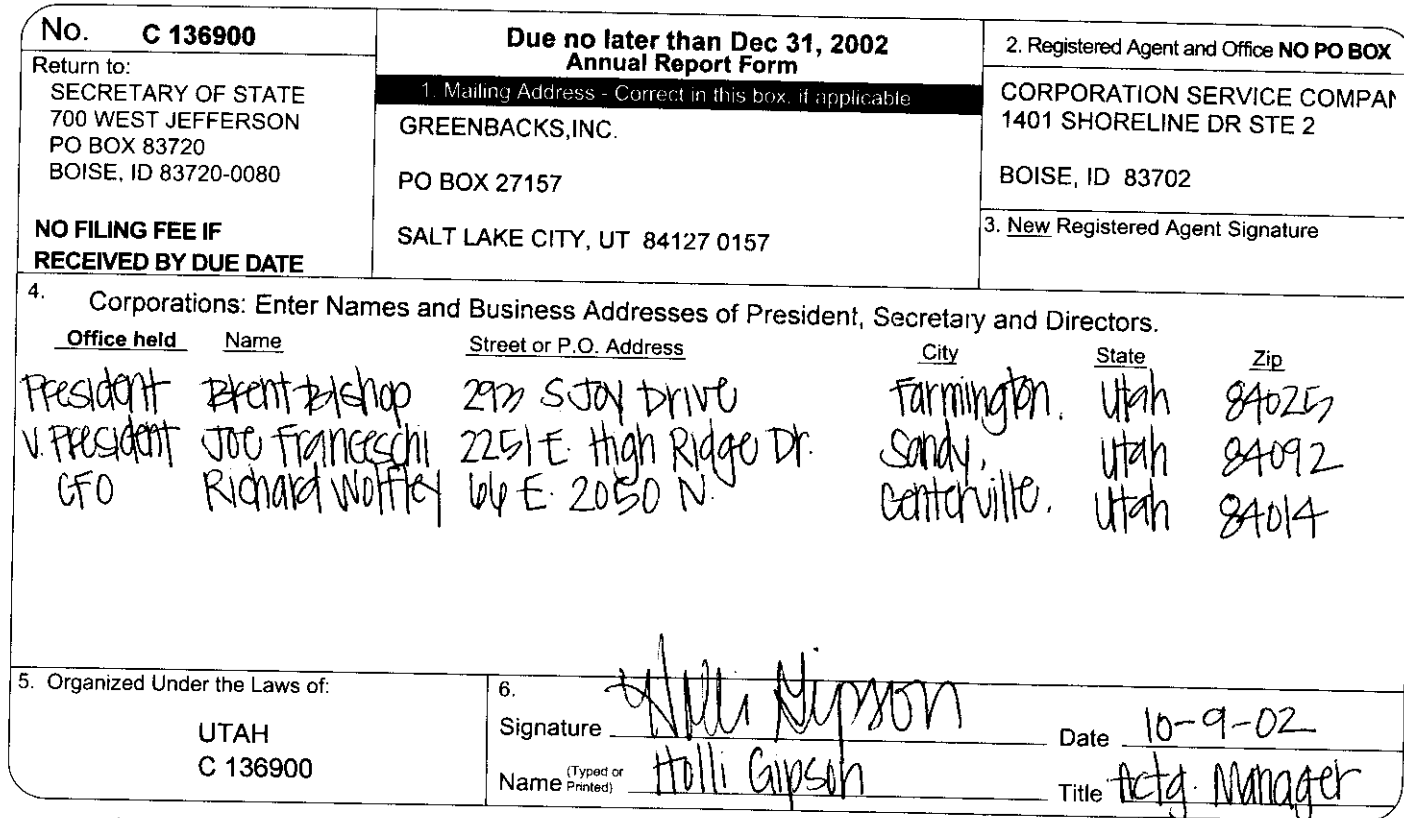 No. C 136900
Return to:
SECRETARY OF STATE
700 WEST JEFFERSON
PO BOX 83720
BOISE, ID 83720-0080
NO FILING FEE IF
RECEIVED BY DUE DATE
Due no later than Dec 31, 2002
Annual Report Form
1. Mailing Address - Correct in this box, if applicable
GREENBACKS,INC.
PO BOX 27157
SALT LAKE CITY, UT 84127 0157
2. Registered Agent and Office NO PO BOX
CORPORATION SERVICE COMPAN
1401 SHORELINE DR STE 2
BOISE, ID 83702
3. New Registered Agent Signature
4. Corporations: Enter Names and Business Addresses of President, Secretary and Directors.
Office held Name Street or P.O. Address City State Zip
President Brent Bishop 293 S Joy Drive Farmington, Utah 84025
V. President Joe Franceschi 2251 E. High Ridge Dr. Sandy, Utah 84092
CFO Richard Wolfley 66 E. 2050 N. Centerville, Utah 84014
5. Organized Under the Laws of:
UTAH
C 136900
6.
Signature Holli Gipson Date 10-9-02
Name (Typed or Printed) Holli Gipson Title Actg. Manager